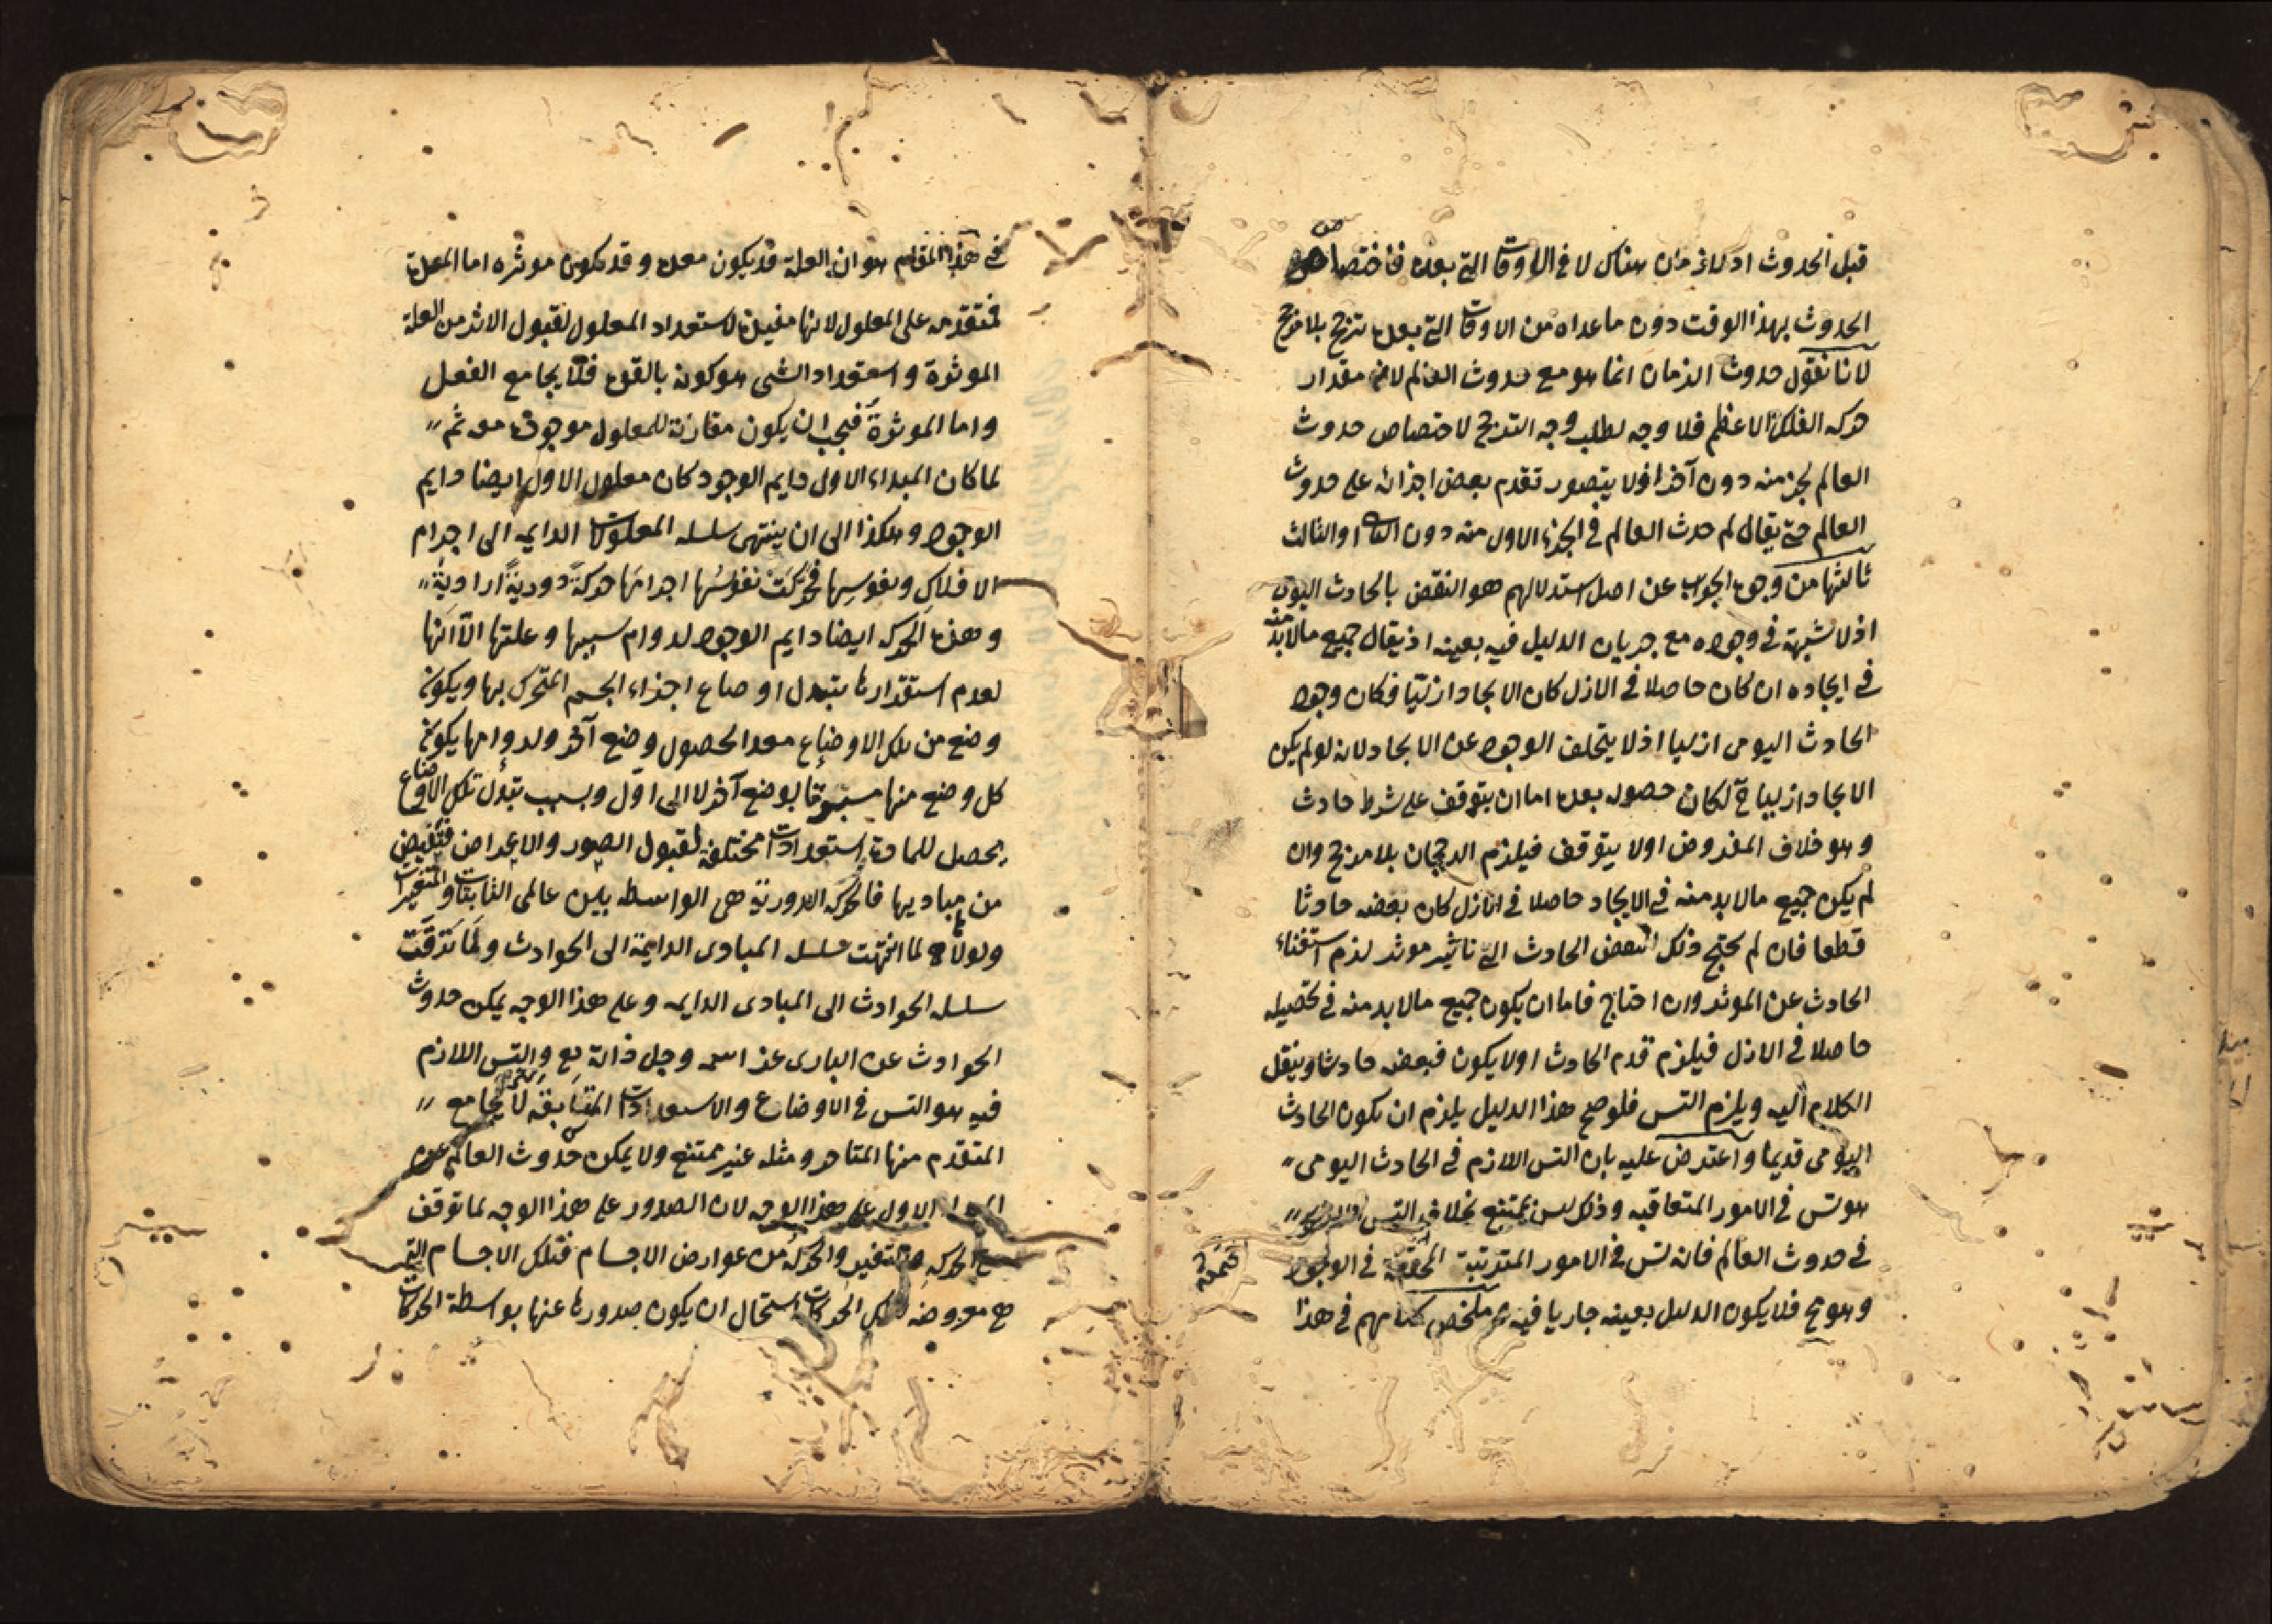 قبل الحدوث اذ لا زمان هناك لا في الاوقات التي بعده فاختصاص
الحدوث بهذا الوقت دون ما عداه من الاوقات التي بعده ترجح بلا مرجح
لانا نقول حدوث الزمان انما هو مع حدوث العالم لانه مقدار
حركه الفلك الاعظم فلا وجه لطلب وجه الترجح لاختصاص حدوث
العالم بجزء منه دون آخر اذ لا يتصور تقدم بعض اجزائه على حدوث
العالم حتى يقال لم حدث العالم في الجزء الاول منه دون الثاني او الثالث
ثالثها من وجوه الجواب عن اصل استدلالهم هو النقض بالحادث اليومي
اذ لا شبهة في وجوده مع جريان الدليل فيه بعينه اذ يقال جميع ما لا بد منه
في ايجاده ان كان حاصلا في الازل كان الايجاد ازليا فكان وجود
الحادث اليومي ازليا اذ لا يتخلف الوجود عن الايجاد لانه لو لم يكن
الايجاد ازليا ح لكان حصوله بعده اما ان يتوقف على شرط حادث
وهو خلاف المفروض او لا يتوقف فيلزم الرجحان بلا مرجح وان
لم يكن جميع ما لا بد منه في الايجاد حاصلا في الازل كان بعضه حادثا
قطعا فان لم يحتج ذلك البعض الحادث الى تاثير موثر لزم استغناء
الحادث عن الموثر وان احتاج فاما ان يكون جميع ما لا بد منه في تحصيله
حاصلا في الازل فيلزم قدم الحادث او لا يكون فبعضه حادث وينقل
الكلام اليه ويلزم التس فلو صح هذا الدليل يلزم ان يكون الحادث
اليومي قديما واعترض عليه بان التس اللازم في الحادث اليومي
هو تس في الامور المتعاقبه وذلك ليس بممتنع بخلاف التس
في حدوث العالم فانه تس في الامور المترتبة المجتمعة في الوجود
وهو مح فلا يكون الدليل بعينه جاريا فيه و ملخص كلامهم في هذا
في هذا المقام هو ان العلة قد يكون معدة وقد يكون موثره اما المعدة
فمتقدمه على المعلول لانها مفيدة لاستعداد المعلول لقبول الاثر من العلة
الموثرة واستعداد الشى هو كونه بالقوة فلا يجامع الفعل
واما الموثرة فيجب ان يكون مقارنة للمعلول موجودة معه ثم
لما كان المبداء الاول دايم الوجود كان معلوله الاول ايضا دايم
الوجود وهكذا الى ان ينتهى سلسله المعلولات الدايمه الى اجرام
الافلاك ونفوسها فحركت نفوسها اجرامها حركة دورية ارادية
وهذه الحركه ايضا دايم الوجود لدوام سببها وعلتها الا انها
لعدم استقرارها يتبدل اوضاع اجزاء الجسم المتحرك بها ويكون
وضع من تلك الاوضاع معدا لحصول وضع آخر ولدوامها يكون
كل وضع منها مسبوقا بوضع آخر لا الى اول وبسبب تبدل تلك الاوضاع
يحصل للمادة استعدادات مختلفه لقبول الصور والاعراض فتفيض
من مباديها فالحركه الدورية هى الواسطه بين عالمى الثابتات والمتغيرات
ولولاها لما انتهت سلسله المبادى الدايمة الى الحوادث ولما ترقت
سلسله الحوادث الى المبادى الدايمه وعلى هذا الوجه يمكن حدوث
الحوادث عن البارى عز اسمه وجل ذاته مع والتس اللازم
فيه هو التس في الاوضاع والاستعدادات المتعاقبه لا يجامع
المتقدم منها المتاخر ومثله غير ممتنع ولا يمكن حدوث العالم عن
المبدا الاول على هذا الوجه لان الصدور على هذا الوجه لما توقف
على الحركه والتغير والحركة من عوارض الاجسام فتلك الاجسام التى
هى معروضه لتلك الحركات استحال ان يكون صدورها عنها بواسطة الحركات